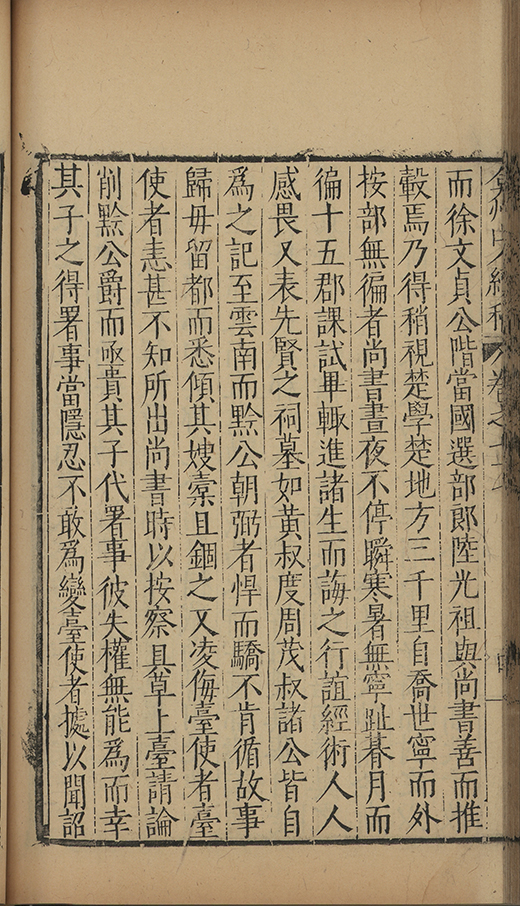 而徐文貞公階當國選部郎陸光祖與尚書善而推
轂焉乃得稍視楚學楚地方三千里自喬世寧而外
按部無徧者尚書晝夜不停瞬寒暑無寧趾朞月而
徧十五郡課試畢輙進諸生而誨之行誼經術人人
感畏又表先賢之祠墓如黃叔度周茂叔諸公皆自
爲之記至雲南而黔公朝弼者悍而驕不肯循故事
歸毋留都而悉傾其嫂槖且錮之又凌侮臺使者臺
使者恚甚不知所出尚書時以按察具草上臺請論
削黔公爵而亟貴其子代署事彼失權無能爲而幸
其子之得署事當隱忍不敢爲變臺使者據以聞詔